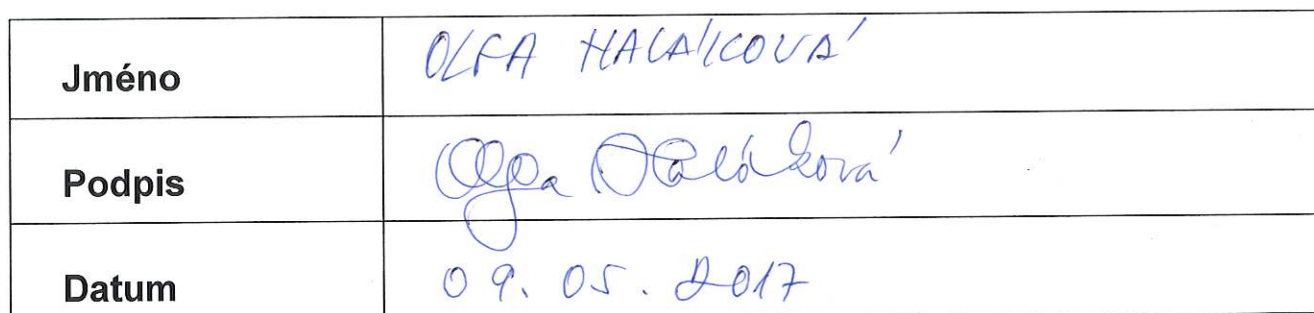 Jméno OLGA HALÁKOVÁ
Podpis Olga Haláková
Datum 09. 05. 2017